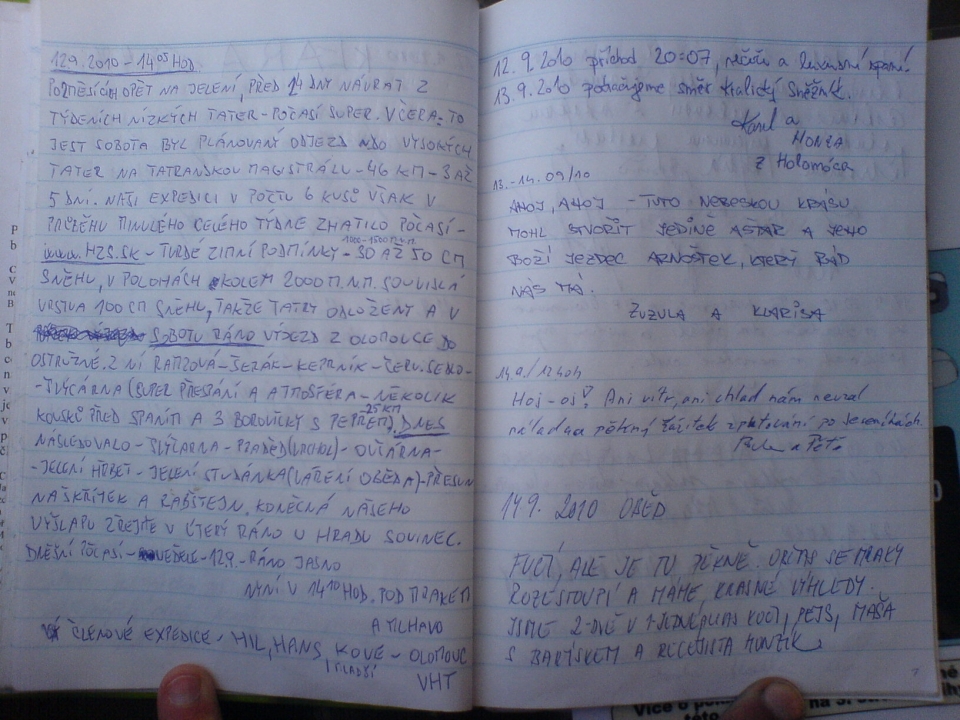 12.9.2010 - 14⁰⁵ HOD.
PO MĚSÍCÍCH OPĚT NA JELENÍ, PŘED 14 DNY NÁVRAT Z
TÝDENÍCH NÍZKÝCH TATER - POČASÍ SUPER. VČERA - TO
JEST SOBOTA BYL PLÁNOVANÝ ODJEZD DO VYSOKÝCH
TATER NA TATRANSKOU MAGISTRÁLU - 46 KM - 3 AŽ
5 DNÍ. NAŠI EXPEDICI V POČTU 6 KUSŮ VŠAK V
PRŮBĚHU MINULÉHO CELÉHO TÝDNE ZHATILO POČASÍ -
www.HZS.SK - TVRDÉ ZIMNÍ PODMÍNKY - 1000-1500 M.N.M. 30 AŽ 50 CM
SNĚHU, V POLOHÁCH OKOLEM 2000 M.N.M. SOUVISLÁ
VRSTVA 100 CM SNĚHU, TAKŽE TATRY ODLOŽENY A V
SOBOTU RÁNO VÝJEZD Z OLOMOUCE DO
OSTRUŽNÉ. Z NÍ RAMZOVÁ - ŠERÁK - KEPRNÍK - ČERV. SEDLO -
- ŠVÝCÁRNA (SUPER PŘESPÁNÍ A ATMOSFÉRA - NĚKOLIK
KOUSKŮ PŘED SPANÍM A 3 BOROVIČKY S PETREM) 25 KM, DNES
NÁSLEDOVALO - ŠVÝCÁRNA - PRADĚD (VRCHOL) - OVČÁRNA -
- JELENÍ HŘBET - JELENÍ STUDÁNKA (VAŘENÍ OBĚDA) - PŘESUN
NA SKŘÍTEK A RABŠTEJN. KONEČNÁ NAŠEHO
VÝŠLAPU ZŘEJMĚ V ÚTERÝ RÁNO U HRADU SOVINEC.
DNEŠNÍ POČASÍ - NEDĚLE - 12.9. - RÁNO JASNO
NYNÍ V 14¹⁰ HOD. POD MRAKEM
A MLHAVO
ČLENOVÉ EXPEDICE - MIL, HANS, KOVE - OLOMOUC
MLADŠÍ
VHT
12.9.2010 příchod 20:07, večeře a
13.9.2010 pokračujeme směr Kralický Sněžník.
Karel a
HONZA
z Holomóca
13.-14.09/10
AHOJ, AHOJ - TUTO NEBESKOU KRÁSU
MOHL STVOŘIT JEDINĚ AŠTAR A JEHO
BOŽÍ JEZDEC ARNOŠTEK, KTERÝ RÁD
NÁS MÁ.
ZUZULA A KLARISA
14.9./12.40h
Hoj-os! Ani vítr, ani chlad nám nevzal
náladu a pěkný zážitek z putování po Jeseníkách.
a Peťa
14.9. 2010 OBĚD
FUČÍ, ALE JE TU PĚKNĚ. OBČAS SE MRAKY
ROZESTOUPÍ A MÁME KRÁSNÉ VÝHLEDY.
JSME 2-DNĚ V KOČÍ, PEJS, MAŠA
S BARTÍSKEM A HONZÍK
7
Více o
na 3.